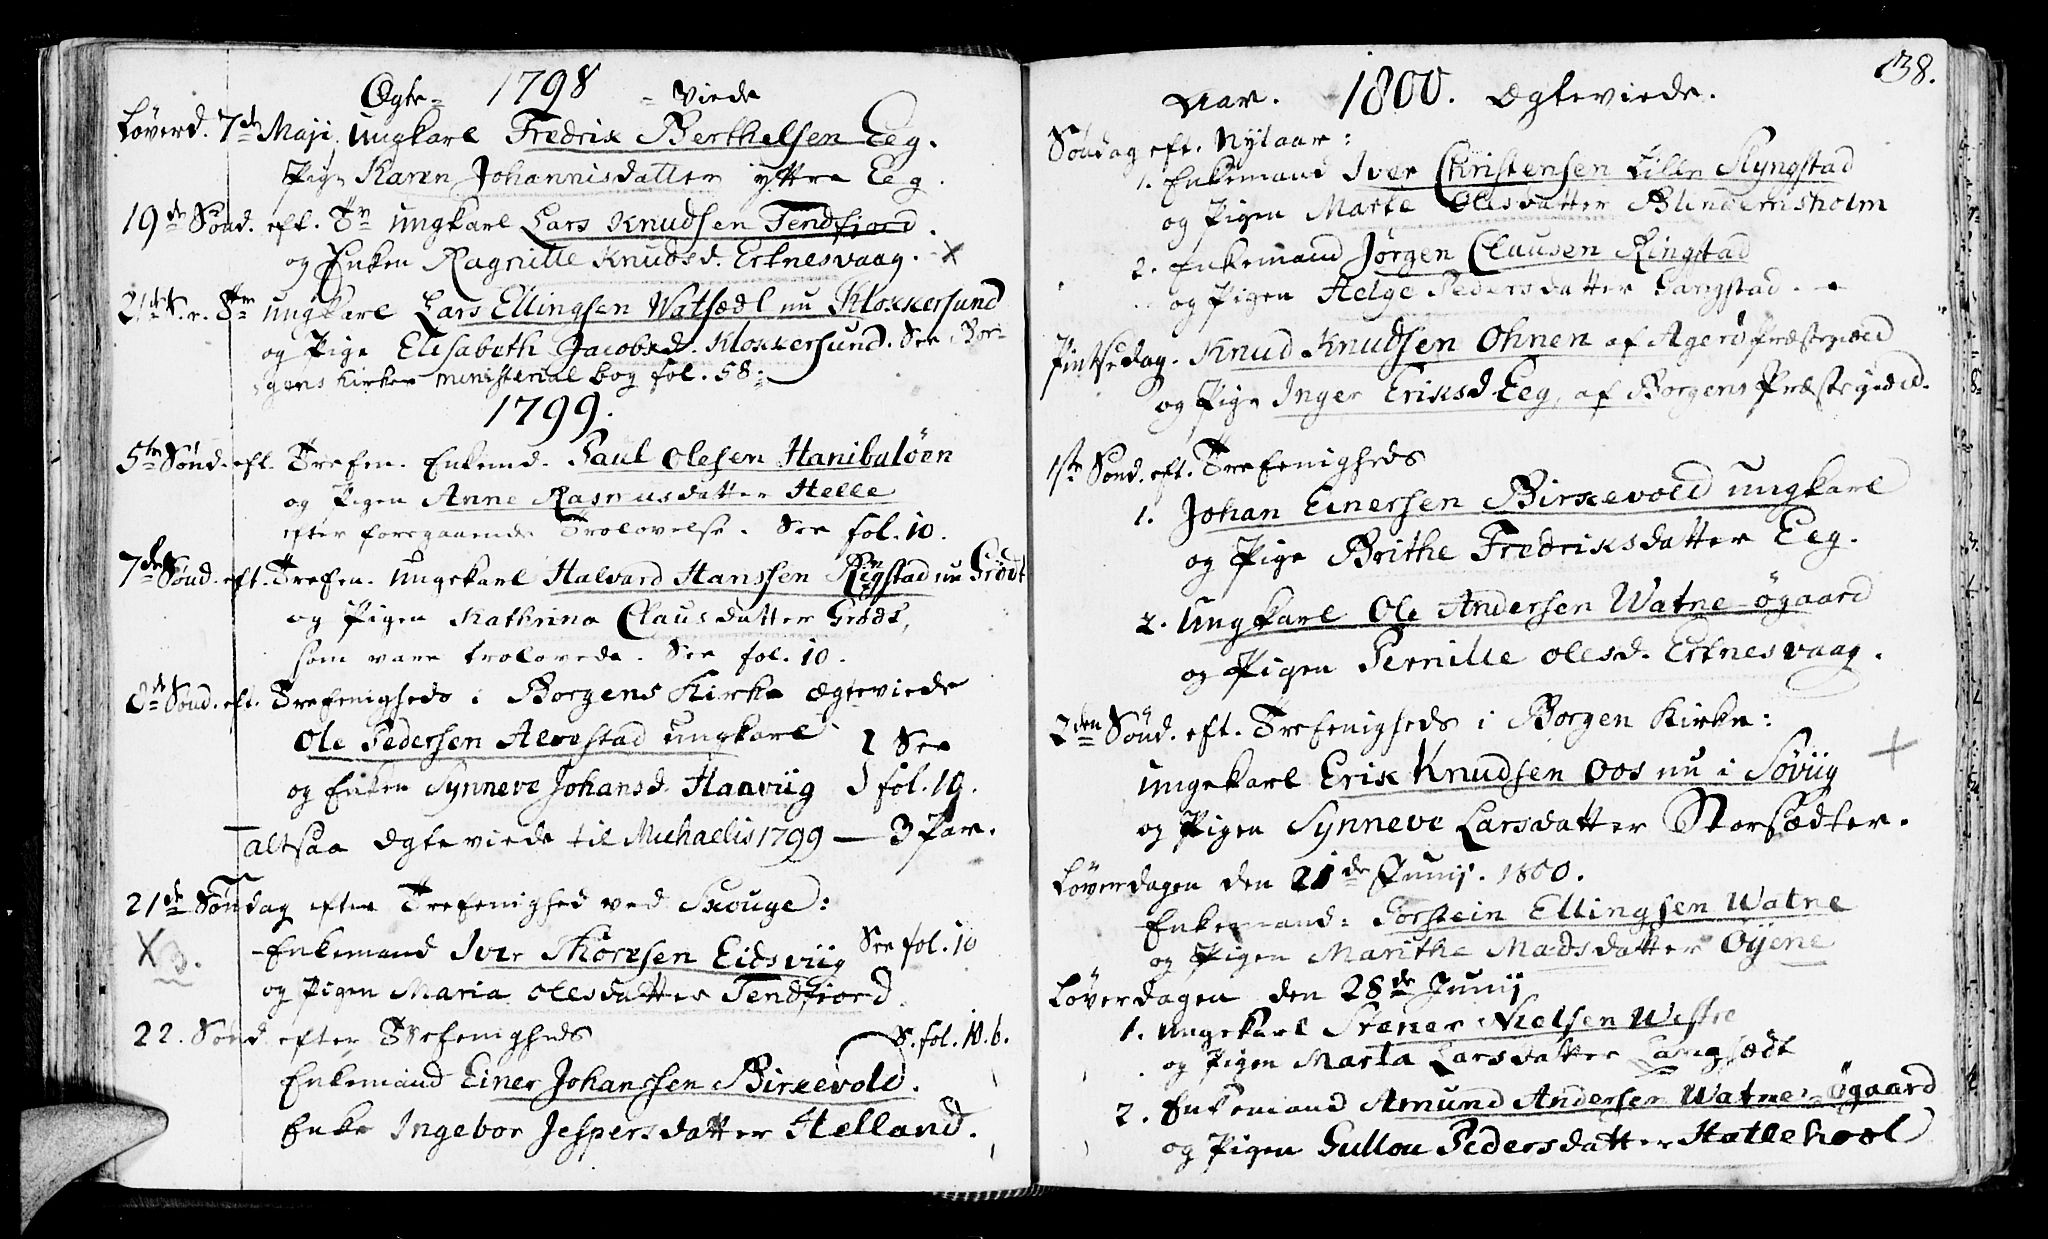 Ægte- 1798 -viede
Løverd. 7de Maji Ungkarl Fredrik Berthelsen Eeg.
Pige Karen Johannisdatter yttre Eeg.
19de Sønd. eft. Tr Ungkarl Lars Knudsen Tendfjord.
og Enken Ragnille Knudsd. Erknesvaag. X
21de S. e. Tr Ungkarl Lars Ellingsen Watsædl nu Klokkersund
og Pige Elisabeth Jacobsd. Klokkersund. See Bor-
gens Kirkes ministerial bog fol. 58.
1799.
5te Sønd. eft. Trefen. Enkemd. Paul Olesen Hanibaløen
og Pigen Anne Rasmusdatter Helle
efter foregaaende Trolovelse. See fol. 10.
7de Sønd. eft. Trefen. Ungekarl Halvard Hanssen Ringstad nu Grødt
og Pigen Kathrina Clausdatter Grødt,
som vare trolovede. See fol. 10.
8de Sønd. eft. Trefenigheds i Borgens Kirke Ægteviede
Ole Pedersen Alvestad ungkarl } See
og Enken Synneve Johansd. Haaviig } fol. 10.
altsaa Ægteviede til Michaelis 1799 — 3 Par.
21de Søndag efter Trefenighed ved Skouge:
X 3. Enkemand Iver Thoresen Eidsviig See fol. 10
og Pigen Maria Olesdatter Tendfiord.
22. Sønd. efter Trefenigheds S. fol. 10. b.
Enkemand Einer Johanssen Birkevold.
Enke Ingebor Jespersdatter Helland.
138.
Aar. 1800. Ægteviede.
Søndag eft. Nytaar:
1. Enkemand Iver Christensen Lille Slyngstad
og Pigen Marte Olesdatter Blindemsholm
2. Enkemand Jørgen Clausen Ringstad
og Pigen Helge Pedersdatter Gangstad.
Pintsedag. Knud Knudsen Ohnen af Agerø Præstegield
og Pige Inger Eriksd Eeg, af Borgens Præstegield.
1ste Sønd. eft. Trefenigheds
1. Johan Einersen Birkevold ungkarl
og Pige Brithe Fredriksdatter Eeg.
2. Ungkarl Ole Andersen Watne-øgaard
og Pigen Pernille Olesd. Erknesvaag.
2den Sønd. eft. Trefenigheds i Borgen Kirke:
Ungekarl Erik Knudsen Oos nu i Søviig +
og Pigen Synneve Larsdatter Storsædter.
Løverdagen den 21de Junij. 1800.
Enkemand: Torstein Ellingsen Watne
og Pigen Marithe Madsdatter Øijene
Løverdagen den 28de Junij
1. Ungekarl Stener Nielsen Westre
og Pigen Marta Larsdatter Langsædt
2. Enkemand Amund Andersen Watne-Øgaard
og Pigen Gullou Pedersdatter Hatlehoel